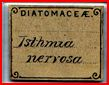 DIATOMACEÆ.
Isthmia
nervosa